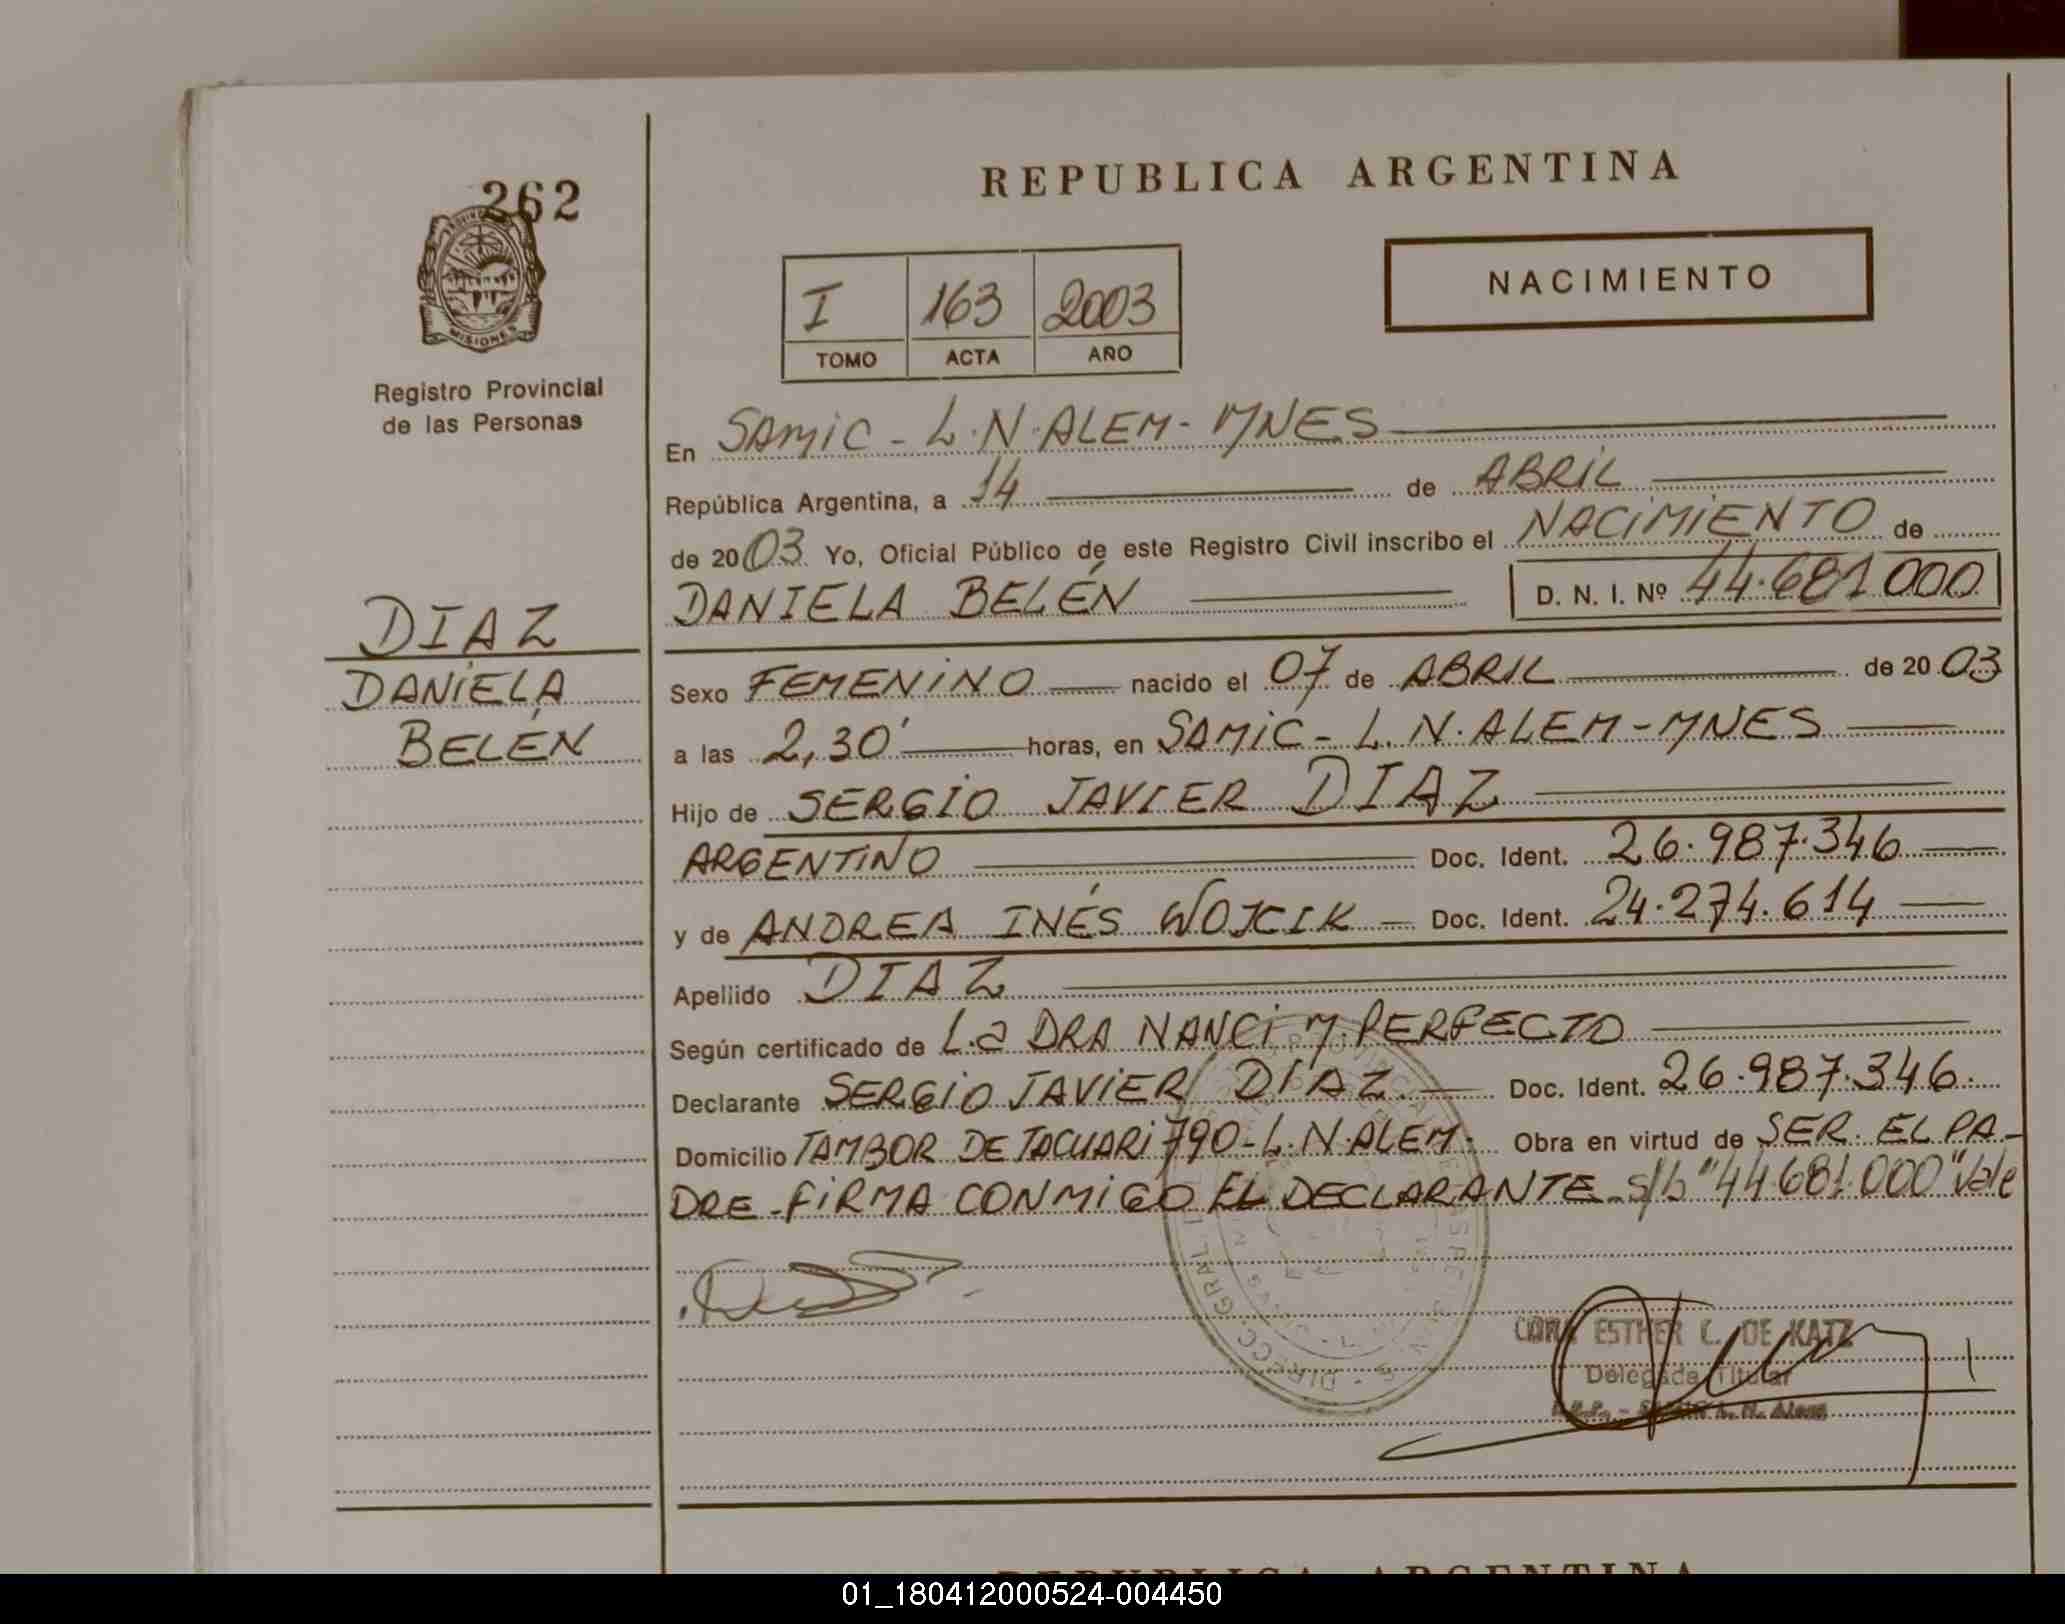 262
PROVINCIA
MISIONES
Registro Provincial
de las Personas
DIAZ
DANIELA
BELÉN
REPUBLICA ARGENTINA
I 163 2003
TOMO ACTA AÑO
NACIMIENTO
En SAMIC - L.N. ALEM - MNES
República Argentina, a 14 de ABRIL
de 2003. Yo, Oficial Público de este Registro Civil inscribo el NACIMIENTO de
DANIELA BELÉN D. N. I. Nº 44.681000
Sexo FEMENINO nacido el 07 de ABRIL de 2003
a las 2,30' horas, en SAMIC - L.N. ALEM - MNES
Hijo de SERGIO JAVIER DIAZ
ARGENTINO Doc. Ident. 26.987.346
y de ANDREA INÉS WOJCIK - Doc. Ident. 24.274.614
Apellido DIAZ
Según certificado de La DRA NANCI M. PERFECTO
Declarante SERGIO JAVIER DIAZ Doc. Ident. 26.987.346.
Domicilio TAMBOR DE TACUARI 790 - L.N. ALEM. Obra en virtud de SER EL PA-
DRE - FIRMA CONMIGO EL DECLARANTE. s/b "44.681.000" Vale
ESTHER C. DE KATZ
Delegada Titular
L. N. Alem
REPUBLICA ARGENTINA
01_180412000524-004450